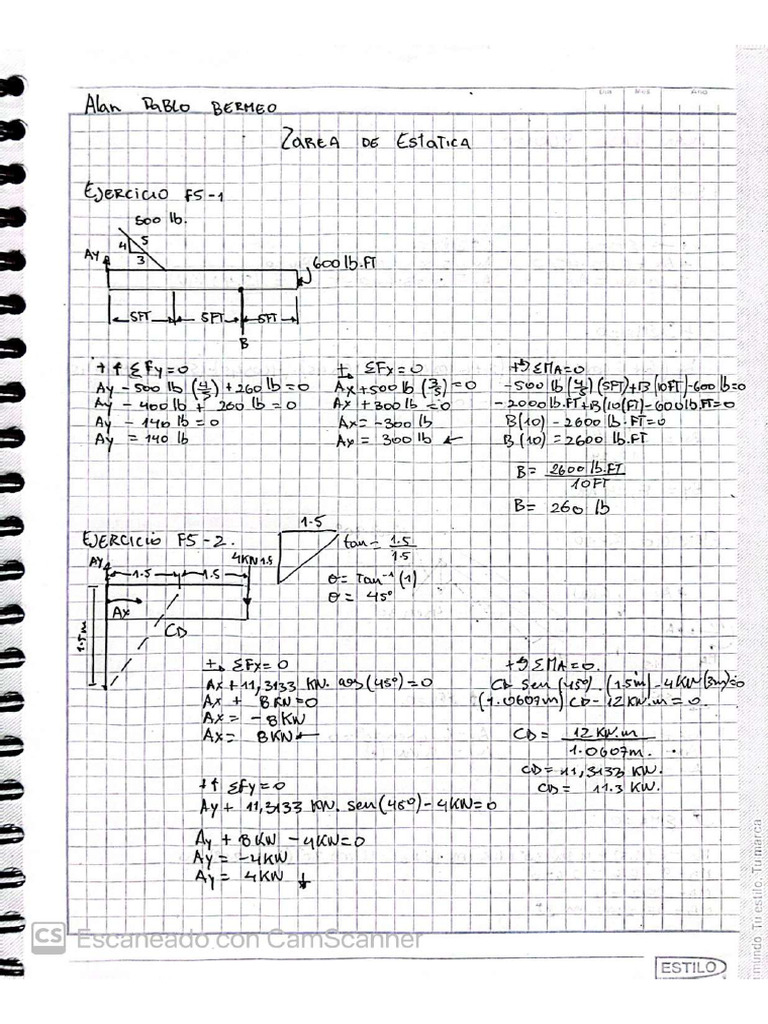 Día Mes Año
Alan PABLO BERMEO
TAREA DE ESTATICA
EJERCICIO F5-1
500 lb.
4 5
3
Ay
600 lb.FT
5FT 5FT 5FT
B
+↑ ΣFy=0
Ay - 500 lb (4/5) + 260 lb = 0
Ay - 400 lb + 260 lb = 0
Ay - 140 lb = 0
Ay = 140 lb
+→ ΣFx=0
Ax + 500 lb (3/5) = 0
Ax + 300 lb = 0
Ax = -300 lb
Ax = 300 lb ←
+↺ ΣMA=0
-500 lb (4/5) (5FT) + B (10FT) - 600 lb = 0
-2000 lb.FT + B(10(FT) - 600 lb.FT = 0
B (10) - 2600 lb.FT = 0
B (10) = 2600 lb.FT
B = 2600 lb.FT
10 FT
B = 260 lb
EJERCICIO F5-2.
Ay
1.5 1.5
4KN 1.5
Ax
CD
1.5m
1.5
tan = 1.5
1.5
θ = Tan⁻¹ (1)
θ = 45°
+→ ΣFx = 0
Ax + 11,3133 KN. cos (45°) = 0
Ax + 8 KN = 0
Ax = -8 KN
Ax = 8KN ←
+↺ ΣMA = 0.
CD Sen (45°) . (1.5m) - 4 KN (3m) = 0
(1.0607m) CD - 12 KN.m = 0.
CD = 12 KN.m
1.0607m.
CD = 11,3133 KN.
CD = 11.3 KN.
+↑ ΣFy = 0
Ay + 11,3133 KN. sen (45°) - 4KN = 0
Ay + 8 KN - 4KN = 0
Ay = -4KN
Ay = 4KN ↓
CS Escaneado con CamScanner
ESTILO
mundo. Tu estilo. Tu marca